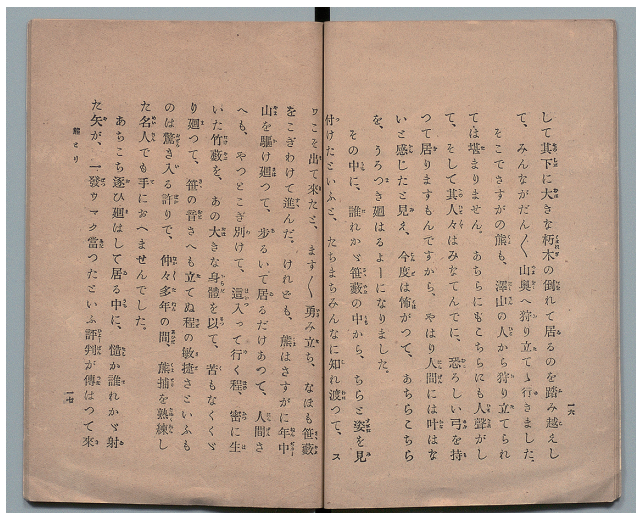 して其下に大きな朽木の倒れて居るのを踏み越えし
て、みんながだん〳〵山奥へ狩り立てゝ行きました。
そこでさすがの熊も、澤山の人から狩り立てられ
ては堪まりません。あちらにもこちらにも人聲がし
て、そして其人々はみなてんでに、恐ろしい弓を持
つて居りますもんですから、やはり人間には叶はな
いと感じたと見え、今度は怖がつて、あちらこちら
を、うろつき廻はるよーになりました。
その中に、誰れかゞ笹藪の中から、ちらと姿を見
付けたといふと、たちまちみんなに知れ渡つて、ス
一六
ワこそ出て来たと、ます〳〵勇み立ち、なほも笹藪
をこぎわけて進んだ。けれども、熊はさすがに年中
山を驅け廻つて、歩るいて居るだけあつて、人間さ
へも、やつとこぎ別けて、這入つて行く程、密に生
いた竹藪を、あの大きな身體を以て、苦もなくくゞ
り廻つて、笹の音さへも立てぬ程の敏捷さといふも
のは驚き入る許りで、仲々多年の間、熊捕を熟練し
た名人でも手におへませんでした。
あちこち逐ひ廻はして居る中に、慥か誰れかゞ射
た矢が、一發ウマク當つたといふ評判が傳はつて來
熊とり
一七